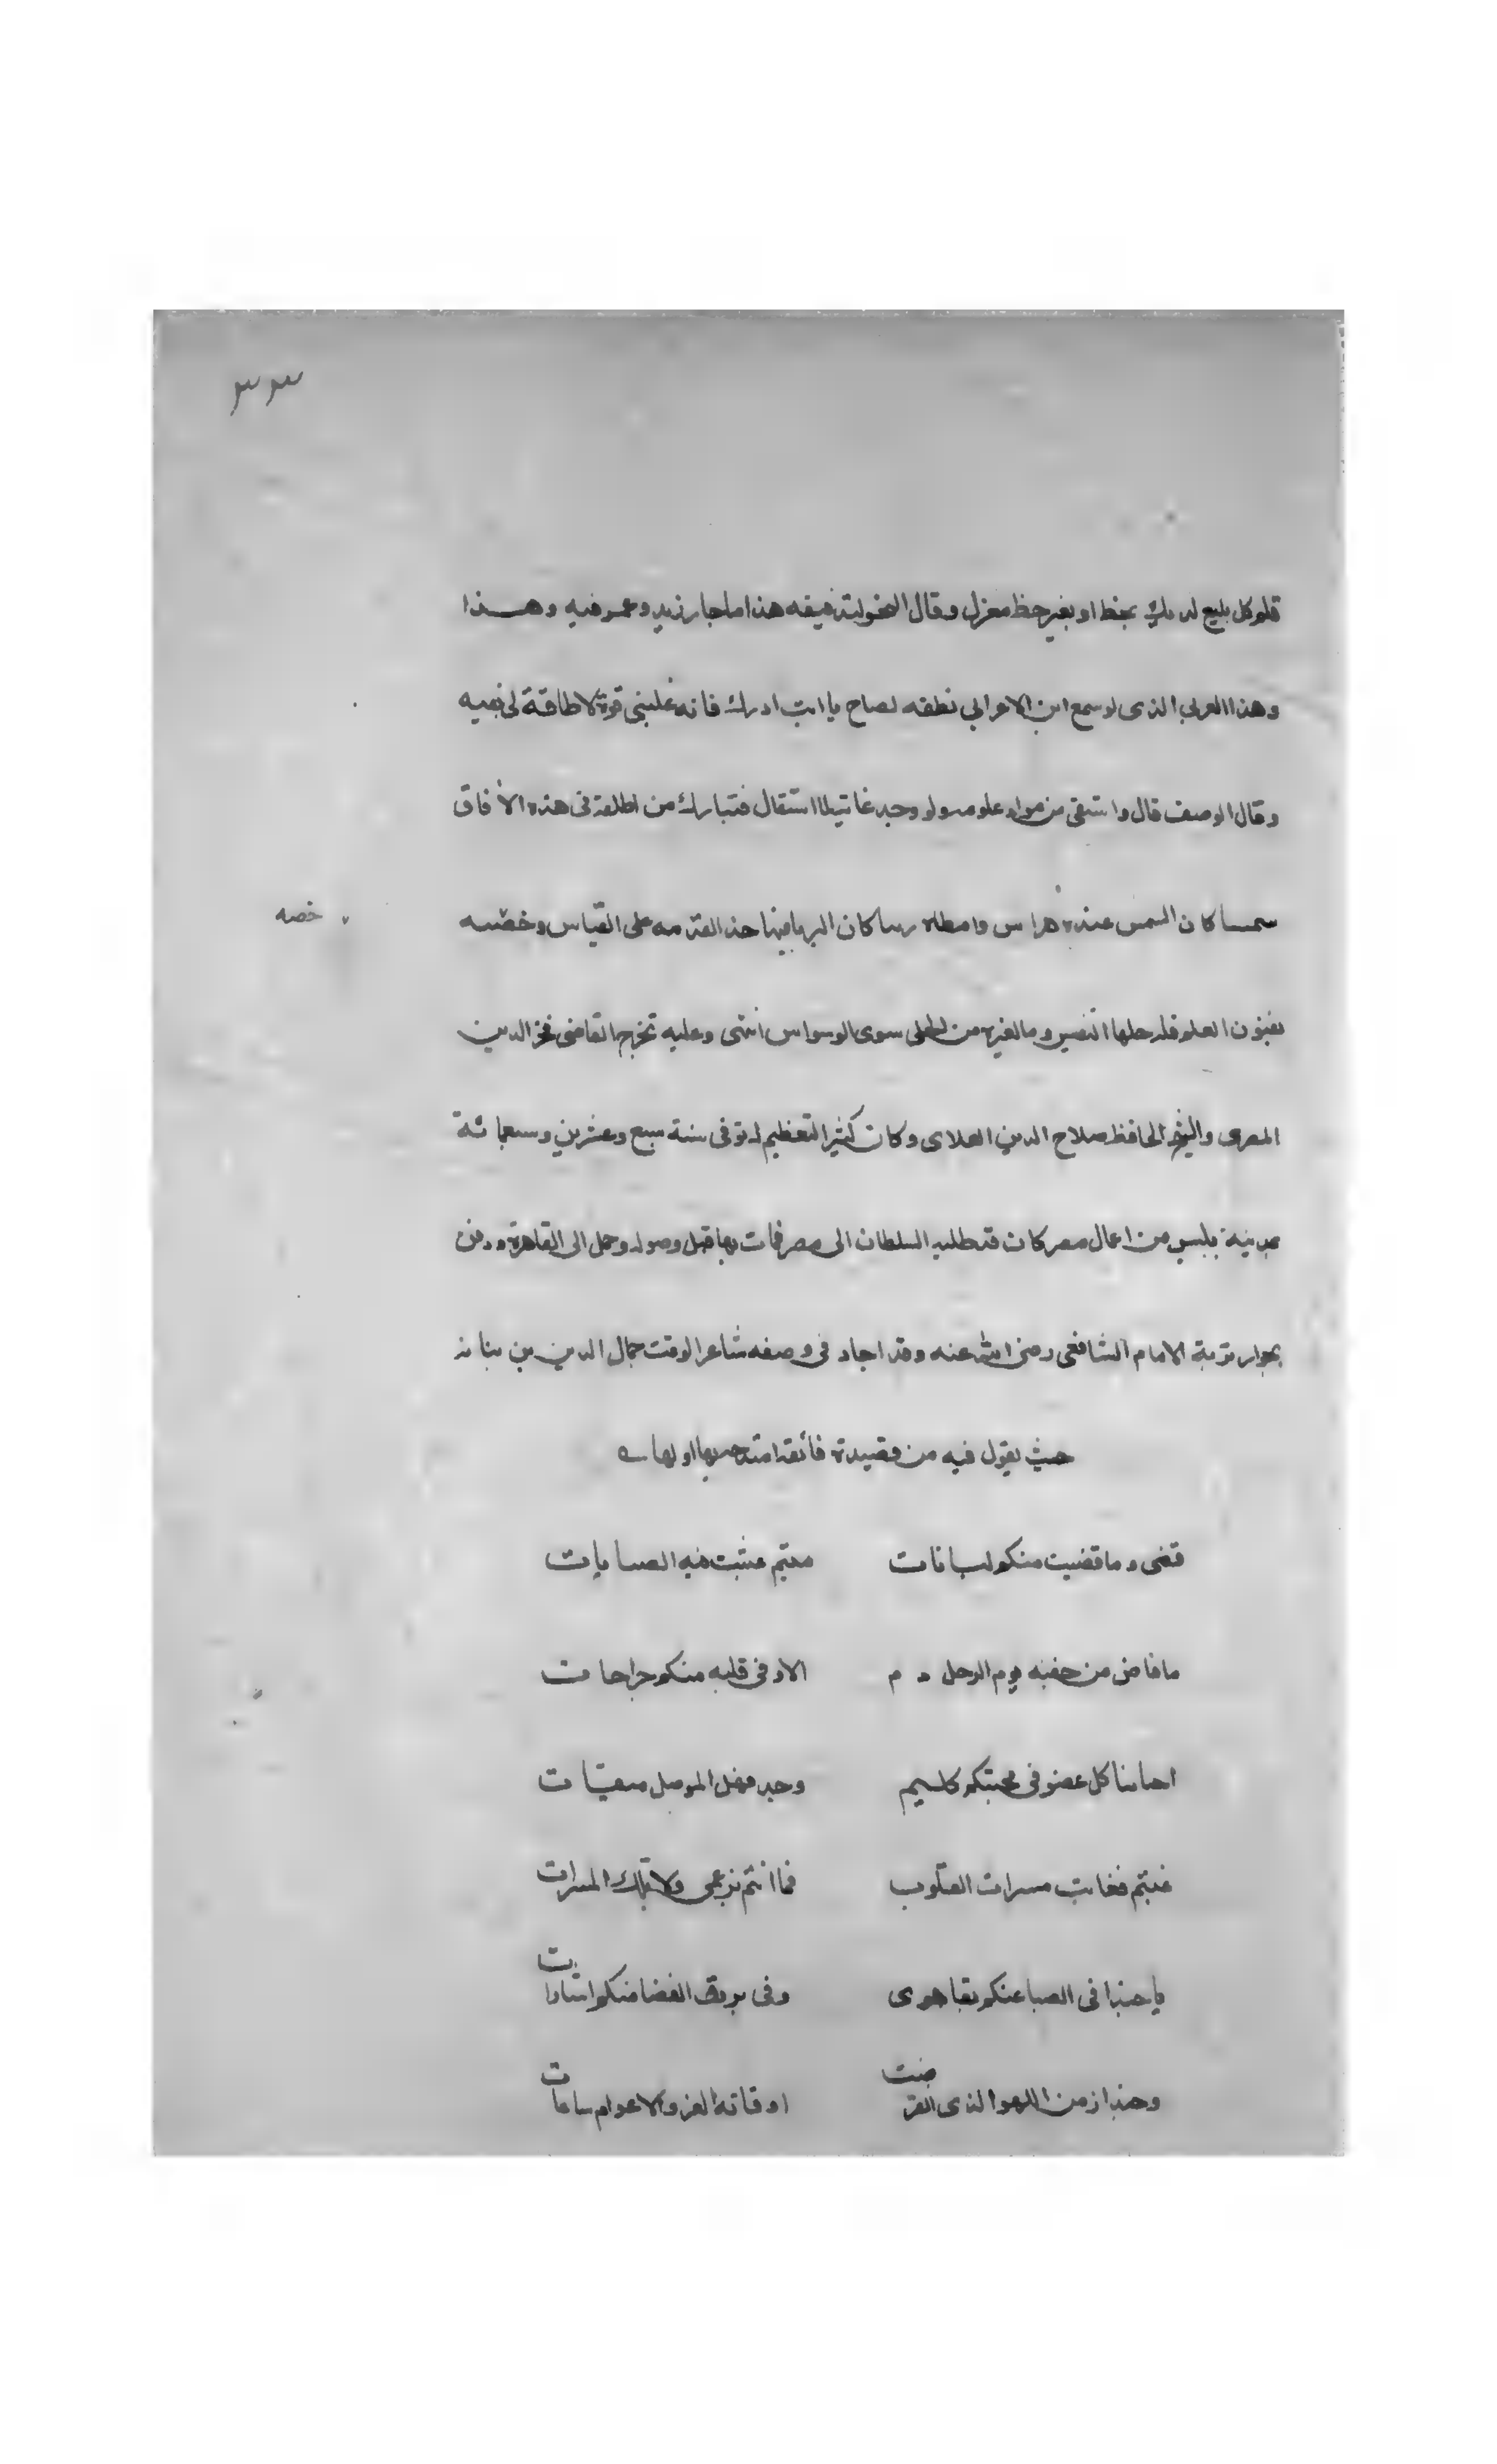 ٣٣
فلو كل بليغ لديك بخط او بغير حظ مغزل وقال النحو لتدقيقه هذا ما جار زيد وعمر فيه وهذا
وهذا العربي الذى لو سمع ابن الاعرابي نطقه لصاح يا ابت ادرك فانه غلبنى قوة لا طاقة لى بفيه
وقال الوصف قال واستقى من مواد علومه ولو وجد غاية لما استقال فتبارك من اطلعه فى هذه الأفاق
سمسا كان السمس عنده على القياس وخصه
خصه
بفنون العلو فله حلها النفيس وما لغيره من الحلى سوى الوسواس انتهى وعليه تخرج القاضى فخر الدين
المصرى والشيخ الحافظ صلاح الدين العلاى وكان كثير التعظيم له توفى سنة سبع وعشرين وسبعمائة
بمدينة بلبيس من اعمال مصر كان قد طلبه السلطان الى مصر فمات بها قبل وصوله وحمل الى القاهرة ودفن
بجوار تربة الامام الشافعى رضى الله عنه وقد اجاد فى وصفه شاعر الوقت جمال الدين بن نباته
حيث يقول فيه من قصيدة فائقة امتدحه بها اولها
قضى وما قضيت منكم لبانات متيم عبثت فيه الصبابات
ما فاض من جفنه يوم الرحل دم الا وفى قلبه منكم جراحات
احبابنا كل عضو فى محبتكم كليم وجد فهل للوصل ميقات
غبتم فغابت مسرات القلوب فما انتم بزعمى ولا تلك المسرات
يا حبذا فى الصبا عنكم بقا هوى وفى بروق الغضا منكم اشارات
وحبذا زمن اللهو الذى انقرضت اوقاته الغر والاعوام ساعات